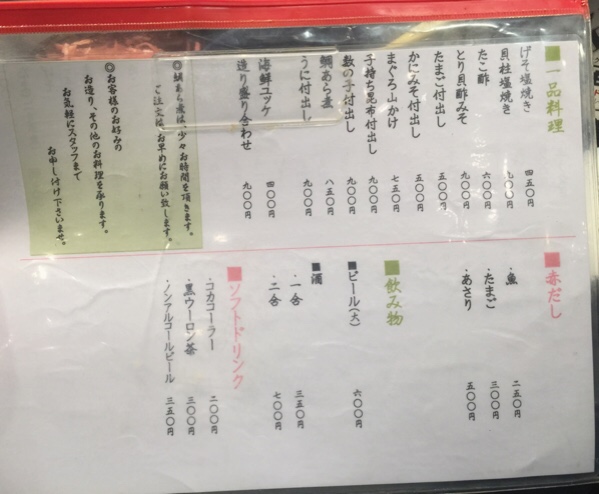 ■一品料理
げそ塩焼き 四五〇円
貝柱塩焼き 九〇〇円
たこ酢 六〇〇円
とり貝酢みそ 九〇〇円
たまご付出し 五〇〇円
かにみそ付出し 五〇〇円
まぐろ山かけ 七五〇円
子持ち昆布付出し 九〇〇円
数の子付出し 九〇〇円
鯛あら煮 八五〇円
うに付出し 九〇〇円
海鮮ユッケ 四〇〇円
造り盛り合わせ 九〇〇円
◎鯛あら煮は、少々お時間を頂きます。
ご注文はお早めにお願い致します。
◎お客様のお好みの
お造り、その他のお料理を承ります。
お気軽にスタッフまで
お申し付け下さいませ。
■赤だし
・魚 二五〇円
・たまご 三〇〇円
・あさり 五〇〇円
■飲み物
■ビール(大) 六〇〇円
■酒
・一合 三五〇円
・二合 七〇〇円
■ソフトドリンク
・コカコーラー 二〇〇円
・黒ウーロン茶 三〇〇円
・ノンアルコールビール 三五〇円